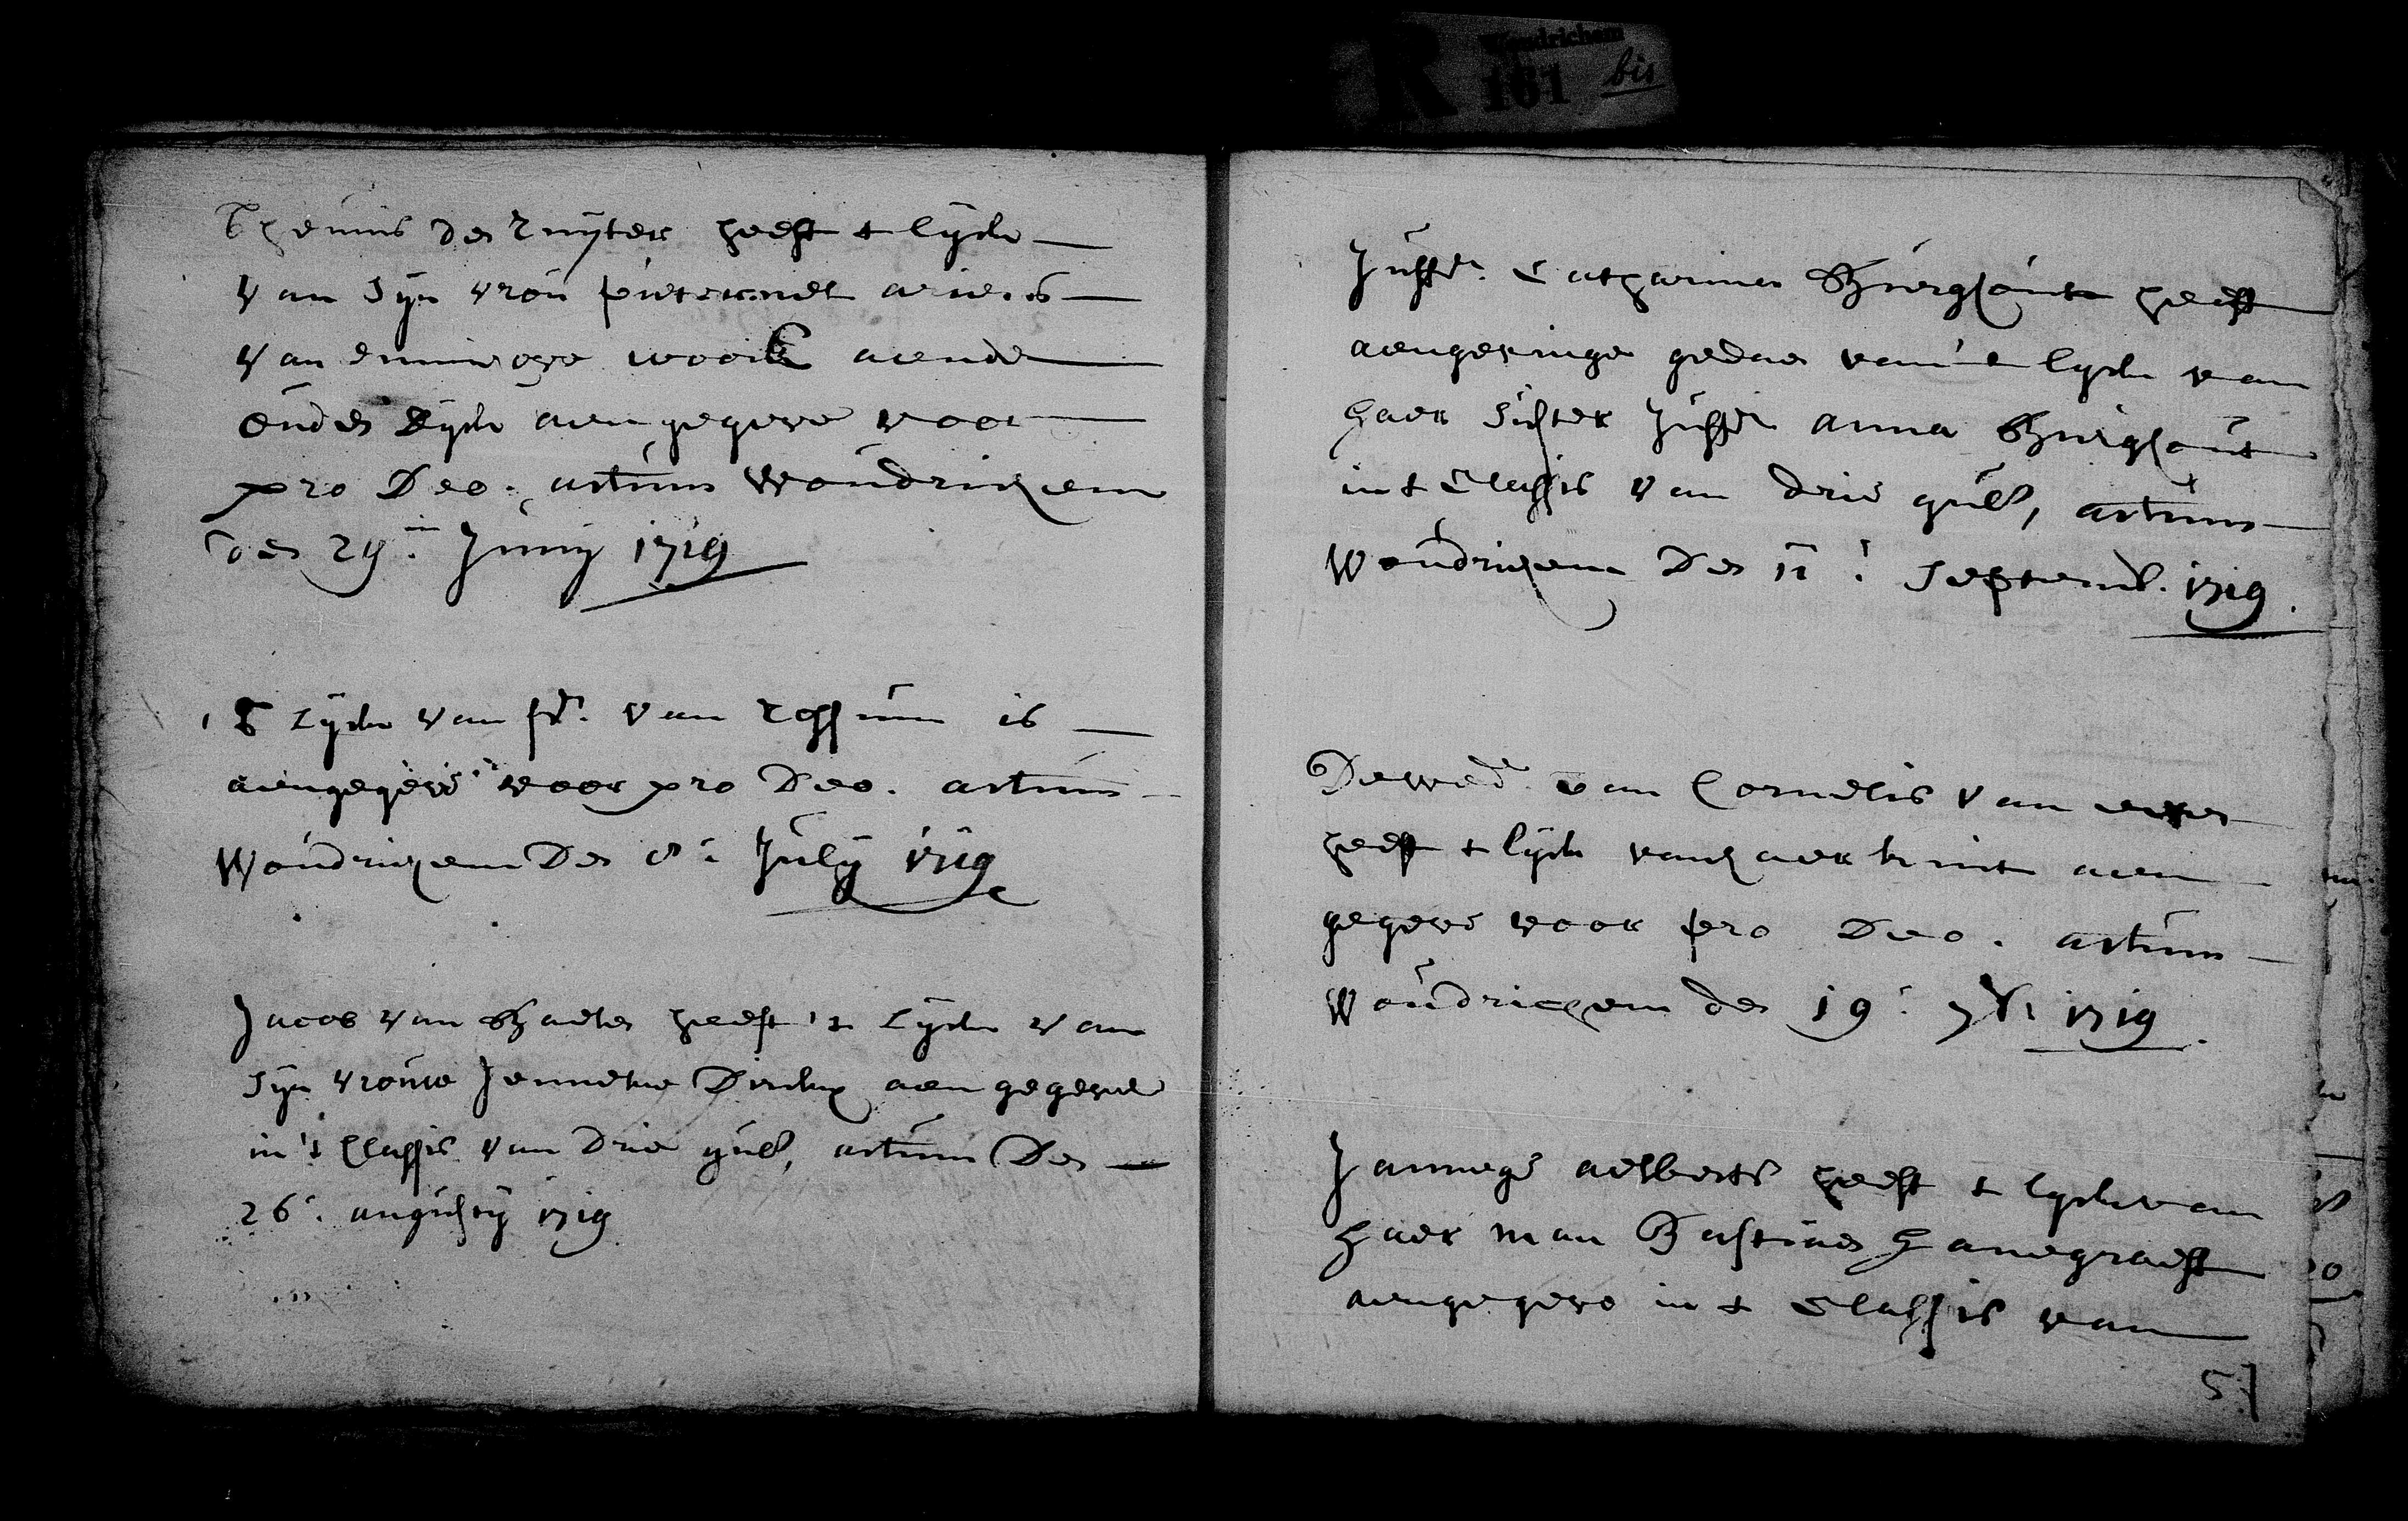 R Woudrichem
161 bis
Theunis de Ruijter heeft t lijck
van sijn vrou pieternel ariens
van emmichove woont aende
oude dijck aen gegeve voor
pro Deo. actum Woudrichem
den 29en Junij 1719
't Lijck van van Rossum is
aengegeve voor pro Deo. actum
Woudrichem Den 8: Julij 1719
Jacob van heeft 't Lijck van
sijn vrouwe Jenneke Dircks aen gegeven
in 't Classis van Drie gul, actum Den
26: augustij 1719
Juffr. Catharina heeft
aengevinge gedaen van 't lijck van
haer suster Juffr anna
in t Classis van drie gul, actum
Woudrichem Den 11: Septemb. 1719.
De Wed van Cornelis van
heeft t lijck van haer kint aen
gegeve voor pro Deo. actum
Woudrichem den 19: 7br 1719.
Jannege aelberts heeft t lijck van
haer man Bastiaen Hanegraeff
aengegeve in t Classis van
57